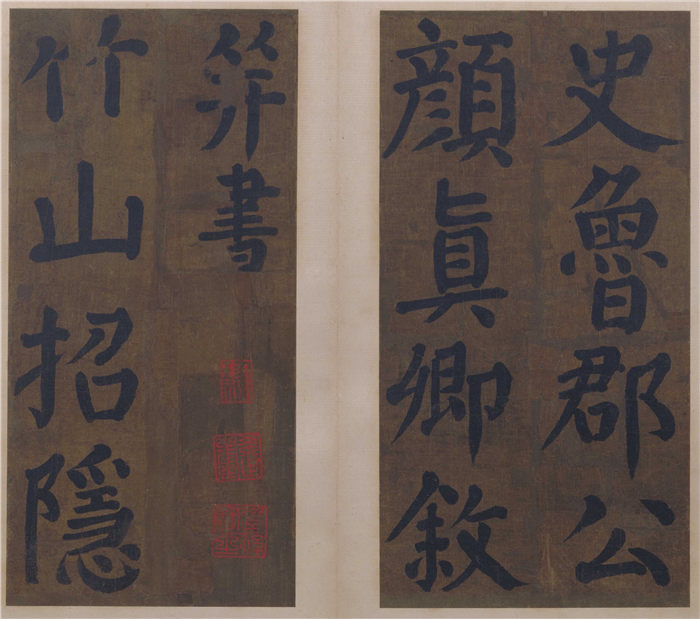 史魯郡公
顏眞卿敘
笄書
竹山招隱